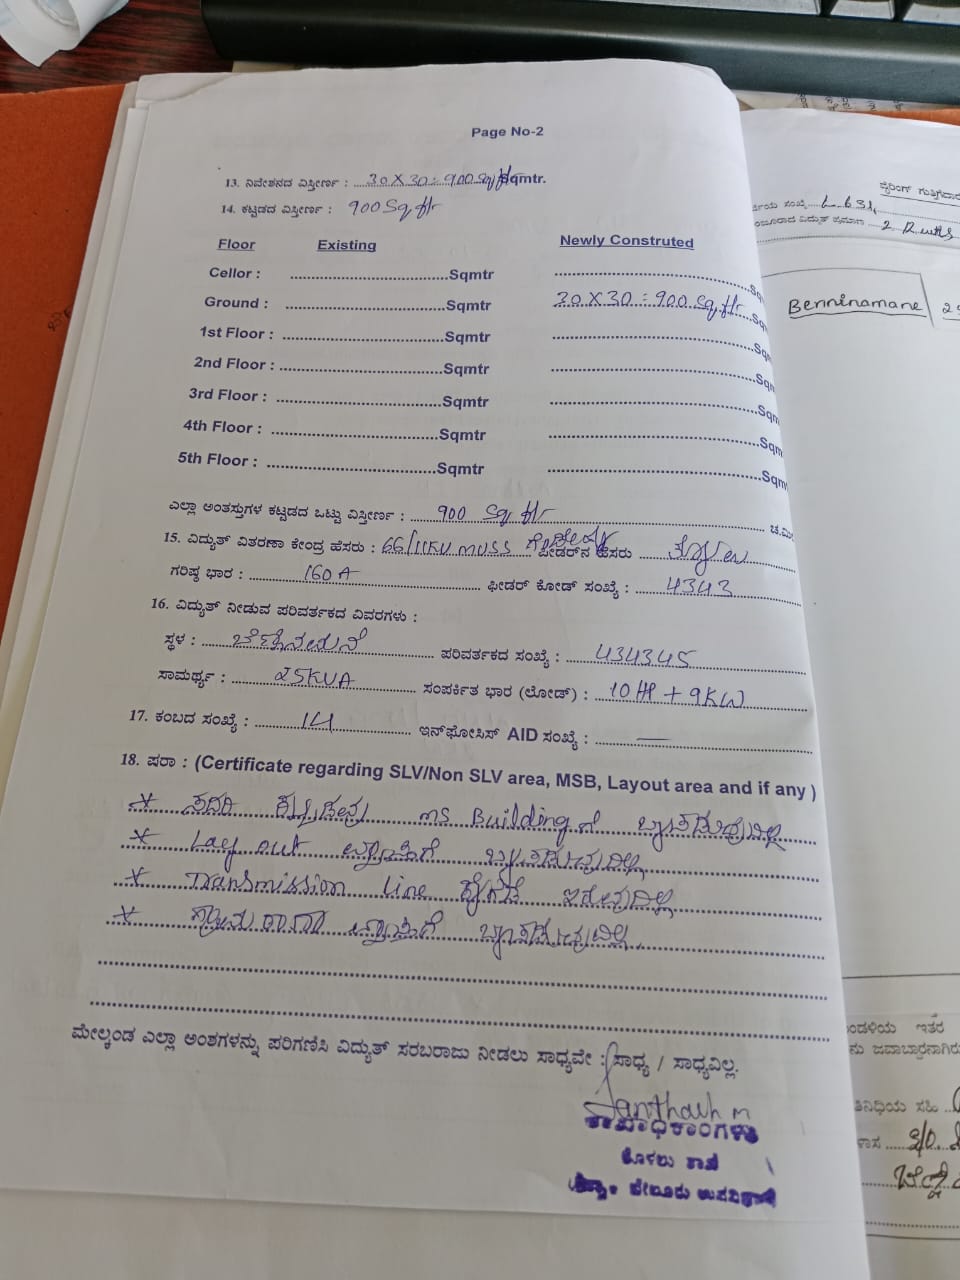 Page No-2
13. ನಿವೇಶನದ ವಿಸ್ತೀರ್ಣ : 30 X 30 = 900 Sq ftr Sqmtr.
14. ಕಟ್ಟಡದ ವಿಸ್ತೀರ್ಣ : 900 Sq ftr
Floor Existing Newly Construted
Cellor : ........Sqmtr ........Sq
Ground : ........Sqmtr 30 X 30 = 900 Sq. ftr Sq
1st Floor : ........Sqmtr ........Sqm
2nd Floor : ........Sqmtr ........Sqm
3rd Floor : ........Sqmtr ........Sqm
4th Floor : ........Sqmtr ........Sqm
5th Floor : ........Sqmtr ........Sqm
ಎಲ್ಲಾ ಅಂತಸ್ತುಗಳ ಕಟ್ಟಡದ ಒಟ್ಟು ವಿಸ್ತೀರ್ಣ : 900 Sq ftr ಚ.ಮೀ
15. ವಿದ್ಯುತ್ ವಿತರಣಾ ಕೇಂದ್ರ ಹೆಸರು : 66/11KV MUSS ಫೀಡರ್‌ನ ಹೆಸರು
ಗರಿಷ್ಠ ಭಾರ : 160 A ಫೀಡರ್ ಕೋಡ್ ಸಂಖ್ಯೆ : 4343
16. ವಿದ್ಯುತ್ ನೀಡುವ ಪರಿವರ್ತಕದ ವಿವರಗಳು :
ಸ್ಥಳ : ಬೆಣ್ಣಿನಮನೆ ಪರಿವರ್ತಕದ ಸಂಖ್ಯೆ : 434345
ಸಾಮರ್ಥ್ಯ : 25KVA ಸಂಪರ್ಕಿತ ಭಾರ (ಲೋಡ್) : 10 HP + 9KW
17. ಕಂಬದ ಸಂಖ್ಯೆ : 14 ಇನ್‌ಫೋಸಿಸ್ AID ಸಂಖ್ಯೆ : —
18. ಷರಾ : (Certificate regarding SLV/Non SLV area, MSB, Layout area and if any )
* ಸದರಿ ಕಟ್ಟಡವು MS Building ಗೆ ಒಳಪಡುವುದಿಲ್ಲ
* Lay out ವ್ಯಾಪ್ತಿಗೆ ಒಳಪಡುವುದಿಲ್ಲ
* Transmission line ಕೆಳಗಡೆ ಇರುವುದಿಲ್ಲ
* ವ್ಯಾಪ್ತಿಗೆ ಒಳಪಡುವುದಿಲ್ಲ
ಮೇಲ್ಕಂಡ ಎಲ್ಲಾ ಅಂಶಗಳನ್ನು ಪರಿಗಣಿಸಿ ವಿದ್ಯುತ್ ಸರಬರಾಜು ನೀಡಲು ಸಾಧ್ಯವೇ : ಸಾಧ್ಯ / ಸಾಧ್ಯವಿಲ್ಲ.
ಶಾಖಾಧಿಕಾರಿಗಳು
ಶಾಖೆ
ಬೇಲೂರು ಉಪವಿಭಾಗ
ವೈರಿಂಗ್ ಗುತ್ತಿಗೆದಾರ
ಸಂಖ್ಯೆ L 631,
ವಿದ್ಯುತ್ ಪ್ರಮಾಣ 2 Kwtts
Benninamane
ಂಡಳಿಯ ಇತರ
ನು ಜವಾಬ್ದಾರನಾಗಿರು
ತಿನಿಧಿಯ ಸಹಿ
ಳಾಸ S/O.